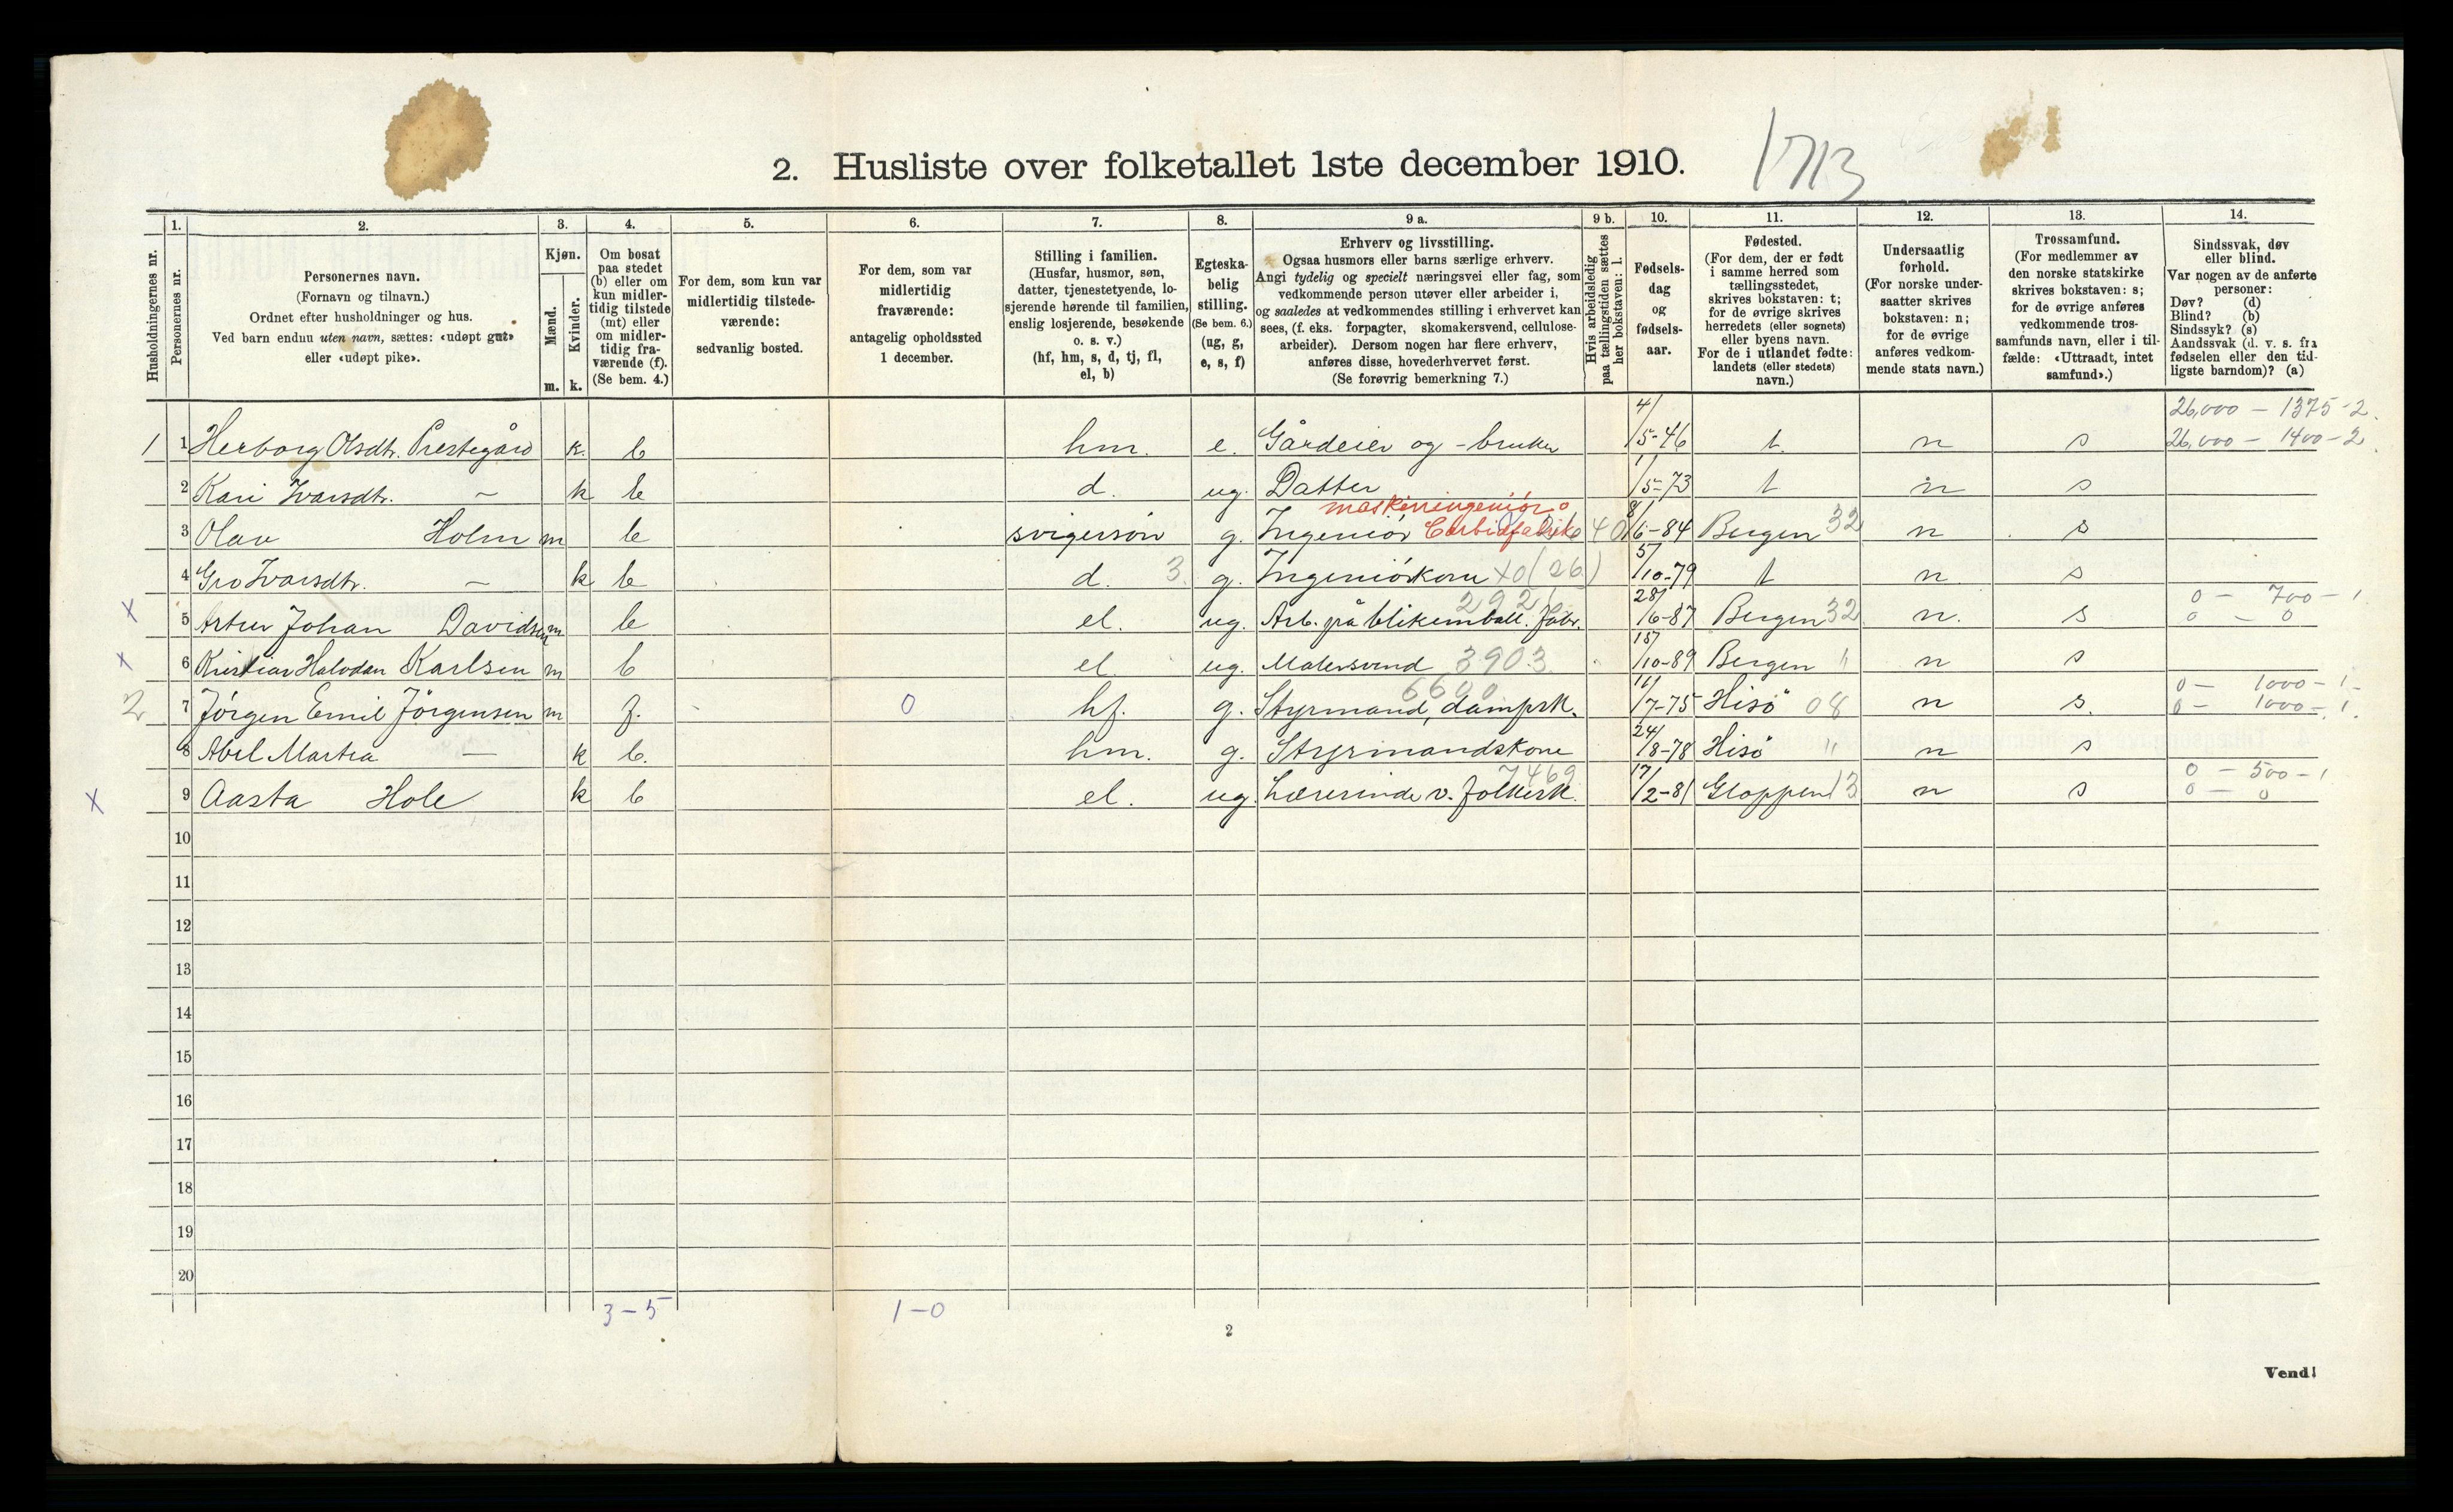 2. Husliste over folketallet 1ste december 1910. 1713
Husholdningernes nr.
1. Personernes nr.
2. Personernes navn.
(Fornavn og tilnavn.)
Ordnet efter husholdninger og hus.
Ved barn endnu uten navn, sættes: «udøpt gut»
eller «udøpt pike».
3. Kjøn.
Mænd. Kvinder.
m. k.
4. Om bosat
paa stedet
(b) eller om
kun midler-
tidig tilstede
(mt) eller
om midler-
tidig fra-
værende (f).
(Se bem. 4.)
5. For dem, som kun var
midlertidig tilstede-
værende:
sedvanlig bosted.
6. For dem, som var
midlertidig
fraværende:
antagelig opholdssted
1 december.
7. Stilling i familien.
(Husfar, husmor, søn,
datter, tjenestetyende, lo-
sjerende hørende til familien,
enslig losjerende, besøkende
o. s. v.)
(hf, hm, s, d, tj, fl,
el, b)
8. Egteska-
belig
stilling.
(Se bem. 6.)
(ug, g,
e, s, f)
9 a. Erhverv og livsstilling.
Ogsaa husmors eller barns særlige erhverv.
Angi tydelig og specielt næringsvei eller fag, som
vedkommende person utøver eller arbeider i,
og saaledes at vedkommendes stilling i erhvervet kan
sees, (f. eks. forpagter, skomakersvend, cellulose-
arbeider). Dersom nogen har flere erhverv,
anføres disse, hovederhvervet først.
(Se forøvrig bemerkning 7.)
9 b. Hvis arbeidsledig
paa tællingstiden sættes
her bokstaven: l.
10. Fødsels-
dag
og
fødsels-
aar.
11. Fødested.
(For dem, der er født
i samme herred som
tællingsstedet,
skrives bokstaven: t;
for de øvrige skrives
herredets (eller sognets)
eller byens navn.
For de i utlandet fødte:
landets (eller stedets)
navn.)
12. Undersaatlig
forhold.
(For norske under-
saatter skrives
bokstaven: n;
for de øvrige
anføres vedkom-
mende stats navn.)
13. Trossamfund.
(For medlemmer av
den norske statskirke
skrives bokstaven: s;
for de øvrige anføres
vedkommende tros-
samfunds navn, eller i til-
fælde: «Uttraadt, intet
samfund».)
14. Sindssvak, døv
eller blind.
Var nogen av de anførte
personer:
Døv? (d)
Blind? (b)
Sindssyk? (s)
Aandssvak (d. v. s. fra
fødselen eller den tid-
ligste barndom)? (a)
26,000 - 1375-2.
1 1 Herborg Olsdtr. Prestegård k. b hm. e. Gårdeier og -bruker 4/5-46 t. n s 26,000 - 1400-2
2 Kari Ivarsdtr. - k b d. ug. Datter 1/5-73 t n s
maskiningeniör
3 Olav Holm m b svigersön g. Ingeniör Carbidfabrik 40 8/6-84 Bergen 32 n s
4 Gro Ivarsdtr. - k b d. 3 g. Ingeniörkone x0 (26) 5/10-79 t n s
292 0 - 700 - 1
x 5 Artur Johan Davidsen m b el. ug. Arb. på blikemball. fabr. 28/6-87 Bergen 32 n. s 0 - 0
x 6 Kristian Halvdan Karlsen m b el ug. Malersvend 3903 15/10-89 Bergen " n s
6600 0 - 1000 - 1
2 7 Jörgen Emil Jörgensen m f. 0 hf. g. Styrmand, dampsk. 11/7-75 Hisö 08 n s. 0 - 1000 - 1.
8 Abel Martea - k b. hm. g. Styrmandskone 24/8-78 Hisö " n s
7469 0 - 500 - 1
x 9 Aasta Hole k b el. ug. Lærerinde v. folkesk. 17/2-81 Gloppen 13 n s 0 - 0
10
11
12
13
14
15
16
17
18
19
20
3-5 1-0
2
Vend!